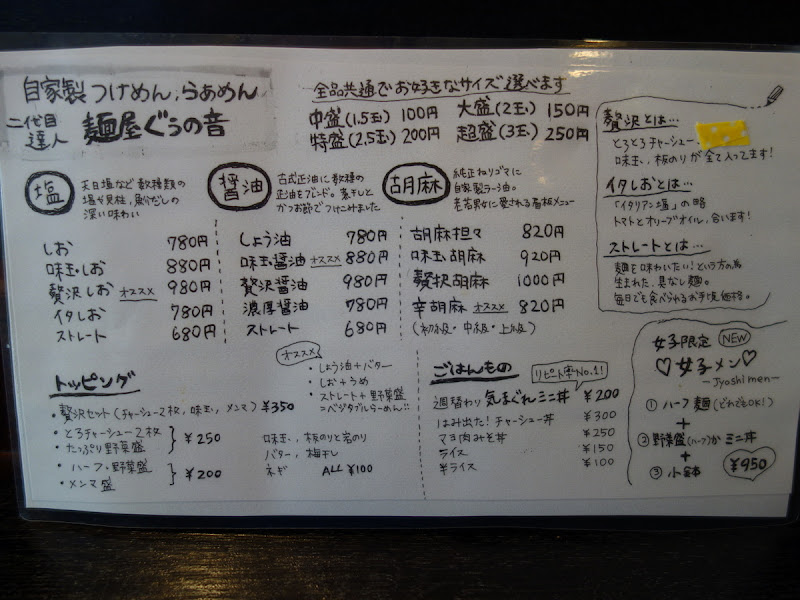 自家製つけめん、らぁめん
二代目達人 麺屋ぐぅの音
全品共通でお好きなサイズ選べます
中盛(1.5玉) 100円 大盛(2玉) 150円
特盛(2.5玉) 200円 超盛(3玉) 250円
贅沢とは…
とろとろチャーシュー、
味玉、板のりが全て入ってます!
イタしおとは…
「イタリアン塩」の略
トマトとオリーブオイル、合います!
ストレートとは…
麺を味わいたい!という方の為
生まれた、具なし麺。
毎日でも食べられるお手頃価格。
塩
天日塩など数種類の
塩が貝柱、魚介だしの
深い味わい
しお 780円
味玉・しお 880円
贅沢しお オススメ 980円
イタしお 780円
ストレート 680円
醤油
古式正油に数種の
正油をブレンド。煮干しと
かつお節でつけこみました
しょう油 780円
味玉・醤油 オススメ 880円
贅沢醤油 980円
濃厚醤油 780円
ストレート 680円
胡麻
純正ねりゴマに
自家製ラー油。
老若男女に愛される看板メニュー
胡麻担々 820円
味玉胡麻 920円
贅沢胡麻 1000円
辛胡麻 オススメ 820円
(初級・中級・上級)
トッピング
・贅沢セット(チャーシュー2枚、味玉、メンマ) ¥350
・とろチャーシュー2枚
・たっぷり野菜盛
¥250
・ハーフ・野菜盛
・メンマ盛
¥200
オススメ
・しょう油+バター
・しお+うめ
・ストレート+野菜盛
=ベジタブルらーめん!!
味玉、板のりと岩のり
バター、梅干し
ネギ ALL ¥100
ごはんもの
リピート率No.1!
週替わり 気まぐれミニ丼 ¥200
はみ出た!チャーシュー丼 ¥300
マヨ肉みそ丼 ¥250
ライス ¥150
半ライス ¥100
女子限定 NEW
♡女子メン♡
〜Jyoshimen〜
① ハーフ麺(どれでもOK!)
+
② 野菜盛(ハーフ)か ミニ丼
+
③ 小鉢
¥950